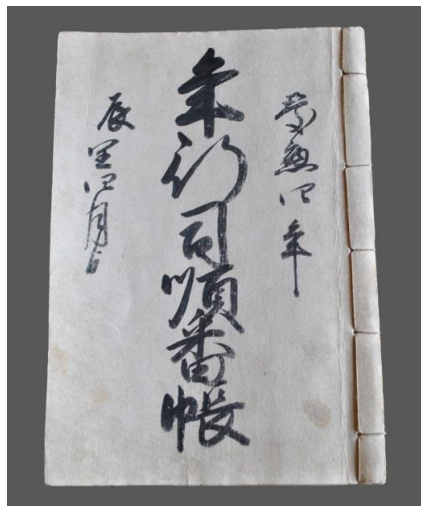 慶應四年
年行司順番帳
辰閏四月